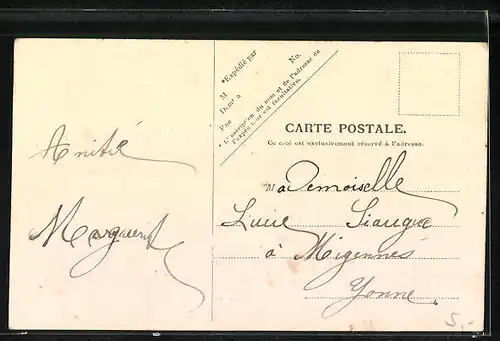 *Expédié par
M
Demt à
Rue No.
* L'inscription du nom et de l'adresse de
l'expéditeur est facultative.
CARTE POSTALE.
Ce côté est exclusivement réservé à l'adresse.
Amitié
Marguerite
Mademoiselle
Lucie
à Migennes
Yonne
5,-